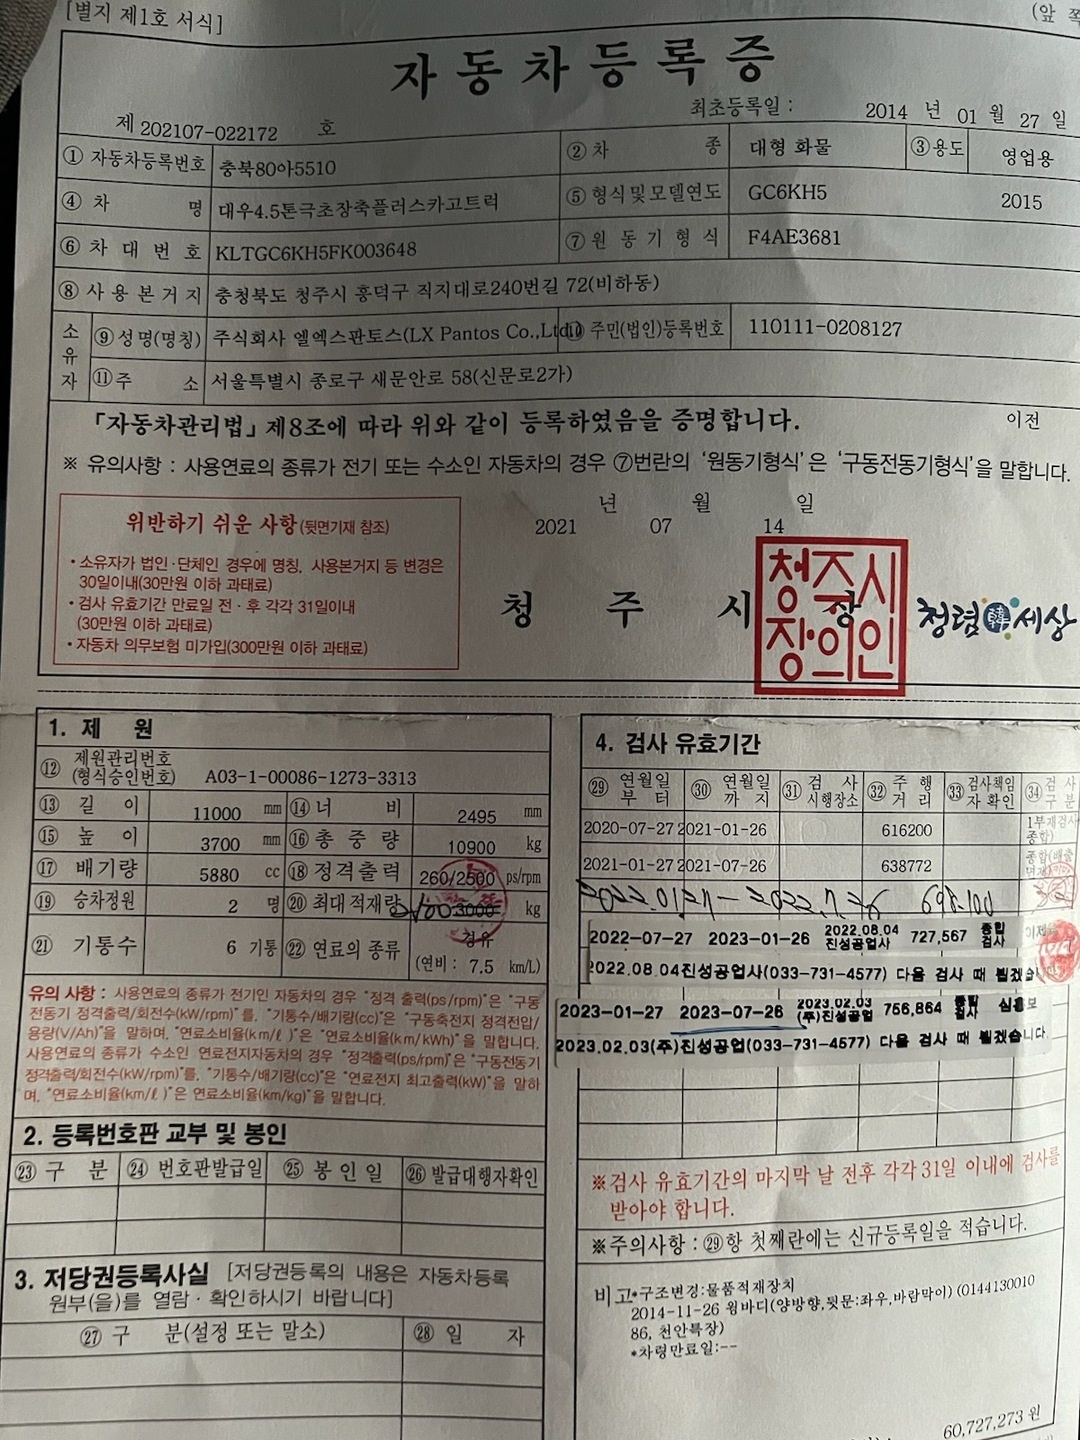 [별지 제1호 서식]
(앞 쪽
자동차등록증
제 202107-022172 호
최초등록일 : 2014 년 01 월 27 일
① 자동차등록번호 충북80아5510 ② 차 종 대형 화물 ③용도 영업용
④ 차 명 대우4.5톤극초장축플러스카고트럭 ⑤ 형식및모델연도 GC6KH5 2015
⑥ 차 대 번 호 KLTGC6KH5FK003648 ⑦ 원 동 기 형 식 F4AE3681
⑧ 사 용 본 거 지 충청북도 청주시 흥덕구 직지대로240번길 72(비하동)
소유자
⑨ 성명(명칭) 주식회사 엘엑스판토스(LX Pantos Co.,Ltd ⑩ 주민(법인)등록번호 110111-0208127
⑪ 주 소 서울특별시 종로구 새문안로 58(신문로2가)
「자동차관리법」 제8조에 따라 위와 같이 등록하였음을 증명합니다. 이전
※ 유의사항 : 사용연료의 종류가 전기 또는 수소인 자동차의 경우 ⑦번란의 '원동기형식'은 '구동전동기형식'을 말합니다.
년 월 일
2021 07 14
위반하기 쉬운 사항(뒷면기재 참조)
• 소유자가 법인·단체인 경우에 명칭, 사용본거지 등 변경은
30일이내(30만원 이하 과태료)
• 검사 유효기간 만료일 전·후 각각 31일이내
(30만원 이하 과태료)
• 자동차 의무보험 미가입(300만원 이하 과태료)
청 주 시 장
청주시
장의인
청렴韓세상
1. 제 원
⑫ 제원관리번호
(형식승인번호) A03-1-00086-1273-3313
⑬ 길 이 11000 mm ⑭ 너 비 2495 mm
⑮ 높 이 3700 mm ⑯ 총 중 량 10900 kg
⑰ 배기량 5880 cc ⑱ 정격출력 260/2500 ps/rpm
⑲ 승차정원 2 명 ⑳ 최대적재량 3000 kg
㉑ 기통수 6 기통 ㉒ 연료의 종류 경유
(연비 : 7.5 km/L)
유의 사항 : 사용연료의 종류가 전기인 자동차의 경우 "정격 출력(ps/rpm)"은 "구동
전동기 정격출력/회전수(kW/rpm)"를, "기통수/배기량(cc)"은 "구동축전지 정격전압/
용량(V/Ah)"을 말하며, "연료소비율(km/ℓ)"은 "연료소비율(km/kWh)"을 말합니다.
사용연료의 종류가 수소인 연료전지자동차의 경우 "정격출력(ps/rpm)"은 "구동전동기
정격출력/회전수(kW/rpm)"를, "기통수/배기량(cc)"은 "연료전지 최고출력(kW)"을 말하
며, "연료소비율(km/ℓ)"은 연료소비율(km/kg)"을 말합니다.
2. 등록번호판 교부 및 봉인
㉓ 구 분 ㉔ 번호판발급일 ㉕ 봉 인 일 ㉖ 발급대행자확인
3. 저당권등록사실 [저당권등록의 내용은 자동차등록
원부(을)를 열람·확인하시기 바랍니다]
㉗ 구 분(설정 또는 말소) ㉘ 일 자
4. 검사 유효기간
㉙ 연월일부터 ㉚ 연월일까지 ㉛ 검사시행장소 ㉜ 주행거리 ㉝ 검사책임자확인 ㉞ 검사구분
2020-07-27 2021-01-26 616200 1부재검사
종합)
2021-01-27 2021-07-26 638772 종합(배출
2022.01.27 - 2022.7.26 698.100
2022-07-27 2023-01-26 2022.08.04 진성공업사 727,567 종합검사
2022.08.04진성공업사(033-731-4577) 다음 검사 때 뵙겠습니
2023-01-27 2023-07-26 2023.02.03 (주)진성공업 756,864 종합검사
2023.02.03(주)진성공업(033-731-4577) 다음 검사 때 뵙겠습니다.
※검사 유효기간의 마지막 날 전후 각각 31일 이내에 검사를
받아야 합니다.
※주의사항 : ㉙항 첫째란에는 신규등록일을 적습니다.
비고 *구조변경:물품적재장치
2014-11-26 윙바디(양방향,뒷문:좌우,바람막이) (0144130010
86, 천안특장)
*차령만료일:--
60,727,273 원